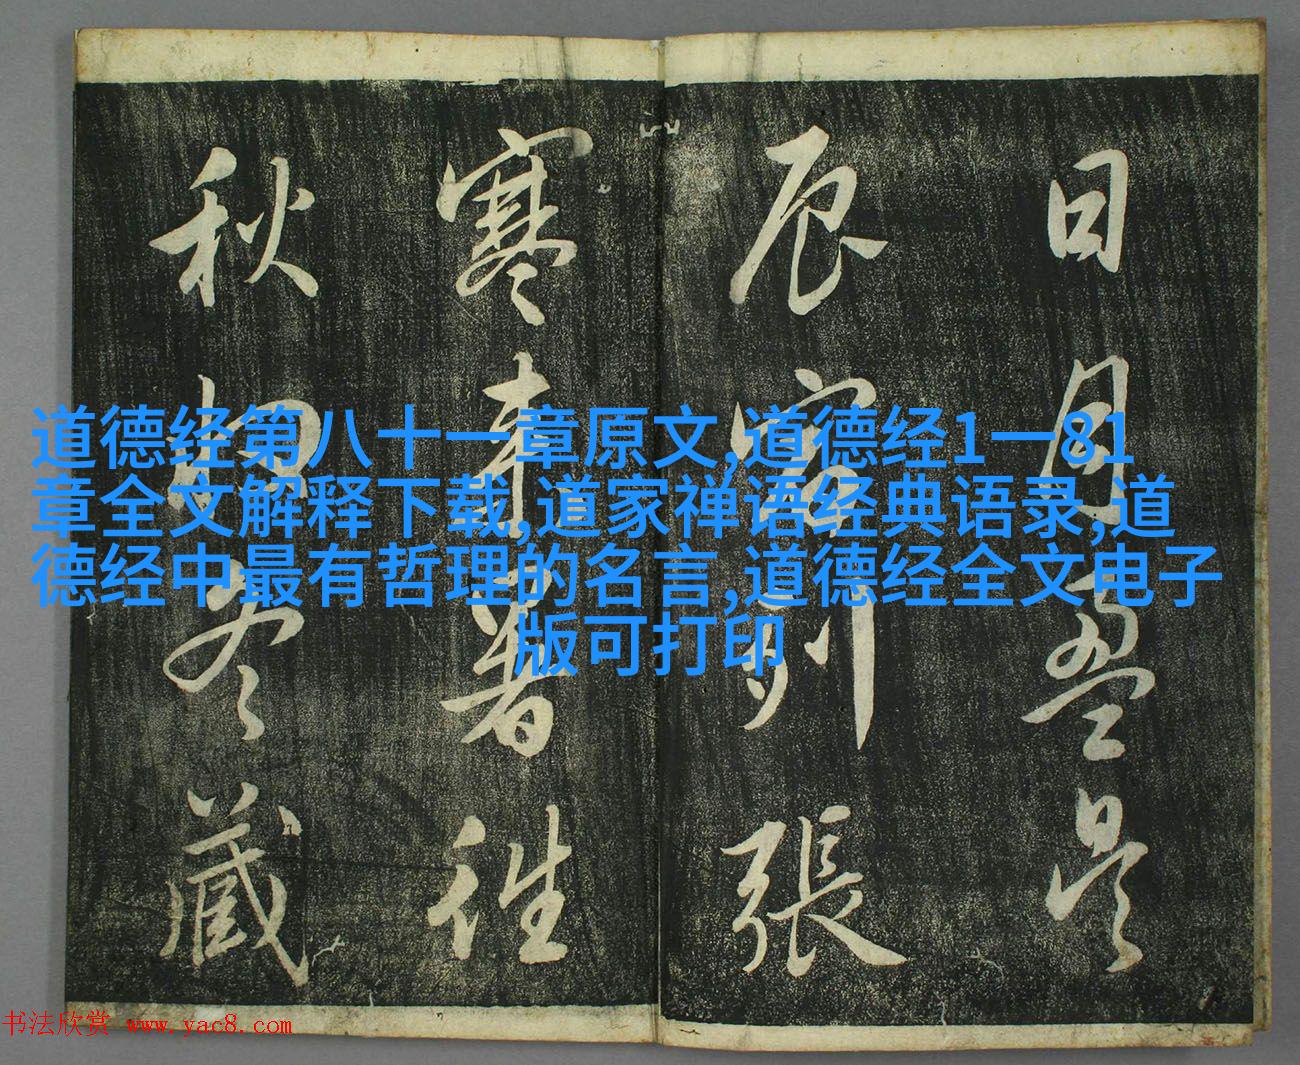 日月盈昃
辰宿列張
寒来暑往
秋收冬藏
道德经第八十一章原文,道德经1一81
章全文解释下载,道家禅语经典语录,道
德经中最有哲理的名言,道德经全文电子
版可打印
书法欣赏 www.yac8.com